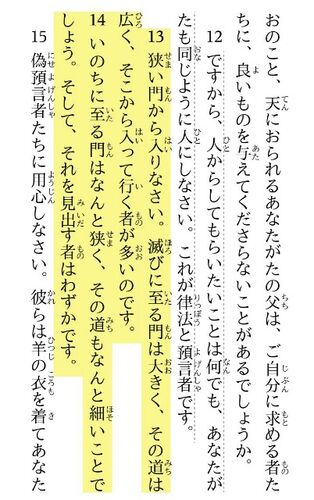 おのこと、天におられるあなたがたの父は、ご自分に求める者た
ちに、良いものを与えてくださらないことがあるでしょうか。
12 ですから、人からしてもらいたいことは何でも、あなたが
たも同じように人にしなさい。これが律法と預言者です。
13 狭い門から入りなさい。滅びに至る門は大きく、その道は
広く、そこから入って行く者が多いのです。
14 いのちに至る門はなんと狭く、その道もなんと細いことで
しょう。そして、それを見出す者はわずかです。
15 偽預言者たちに用心しなさい。彼らは羊の衣を着てあなた